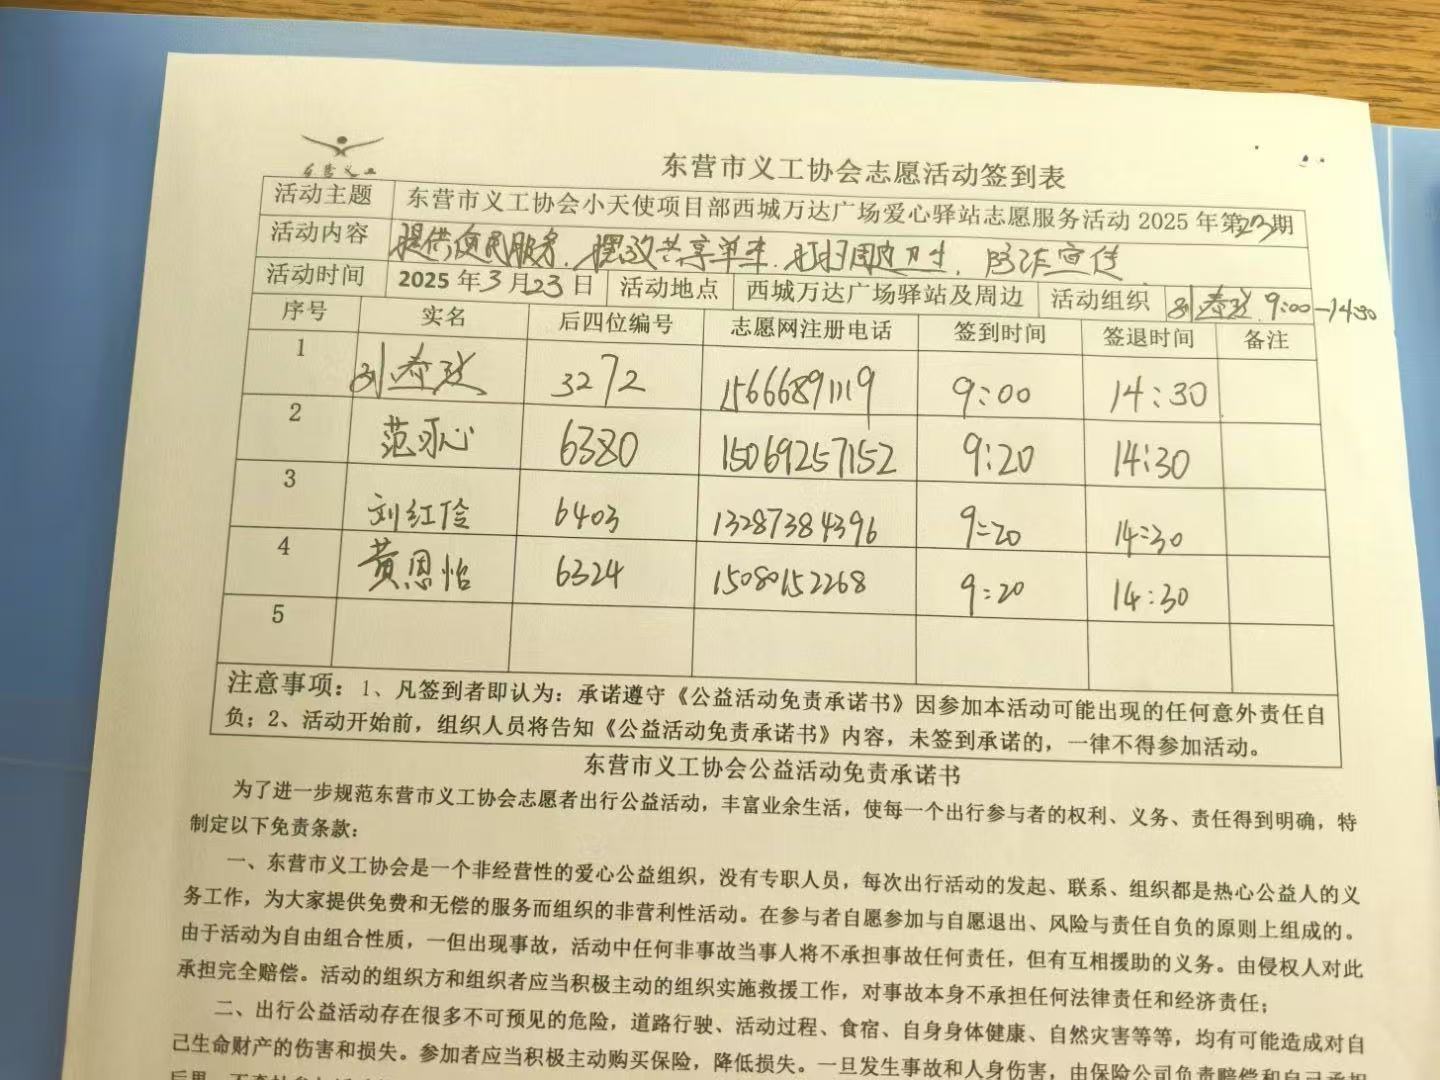 东营义工
东营市义工协会志愿活动签到表
活动主题 东营市义工协会小天使项目部西城万达广场爱心驿站志愿服务活动 2025 年第23期
活动内容 提供便民服务、摆放共享单车、打扫周边卫生、防诈宣传
活动时间 2025 年3月23日 活动地点 西城万达广场驿站及周边 活动组织 刘春玲 9:00—14:30
序号 实名 后四位编号 志愿网注册电话 签到时间 签退时间 备注
1 刘春玲 3272 15666891119 9:00 14:30
2 范沁心 6380 15069257152 9:20 14:30
3 刘红俭 6403 13287384396 9:20 14:30
4 黄恩怡 6324 15080152268 9:20 14:30
5
注意事项：1、凡签到者即认为：承诺遵守《公益活动免责承诺书》因参加本活动可能出现的任何意外责任自
负；2、活动开始前，组织人员将告知《公益活动免责承诺书》内容，未签到承诺的，一律不得参加活动。
东营市义工协会公益活动免责承诺书
为了进一步规范东营市义工协会志愿者出行公益活动，丰富业余生活，使每一个出行参与者的权利、义务、责任得到明确，特
制定以下免责条款：
一、东营市义工协会是一个非经营性的爱心公益组织，没有专职人员，每次出行活动的发起、联系、组织都是热心公益人的义
务工作，为大家提供免费和无偿的服务而组织的非营利性活动。在参与者自愿参加与自愿退出、风险与责任自负的原则上组成的。
由于活动为自由组合性质，一但出现事故，活动中任何非事故当事人将不承担事故任何责任，但有互相援助的义务。由侵权人对此
承担完全赔偿。活动的组织方和组织者应当积极主动的组织实施救援工作，对事故本身不承担任何法律责任和经济责任；
二、出行公益活动存在很多不可预见的危险，道路行驶、活动过程、食宿、自身身体健康、自然灾害等等，均有可能造成对自
己生命财产的伤害和损失。参加者应当积极主动购买保险，降低损失。一旦发生事故和人身伤害，由保险公司负责赔偿和自己承担